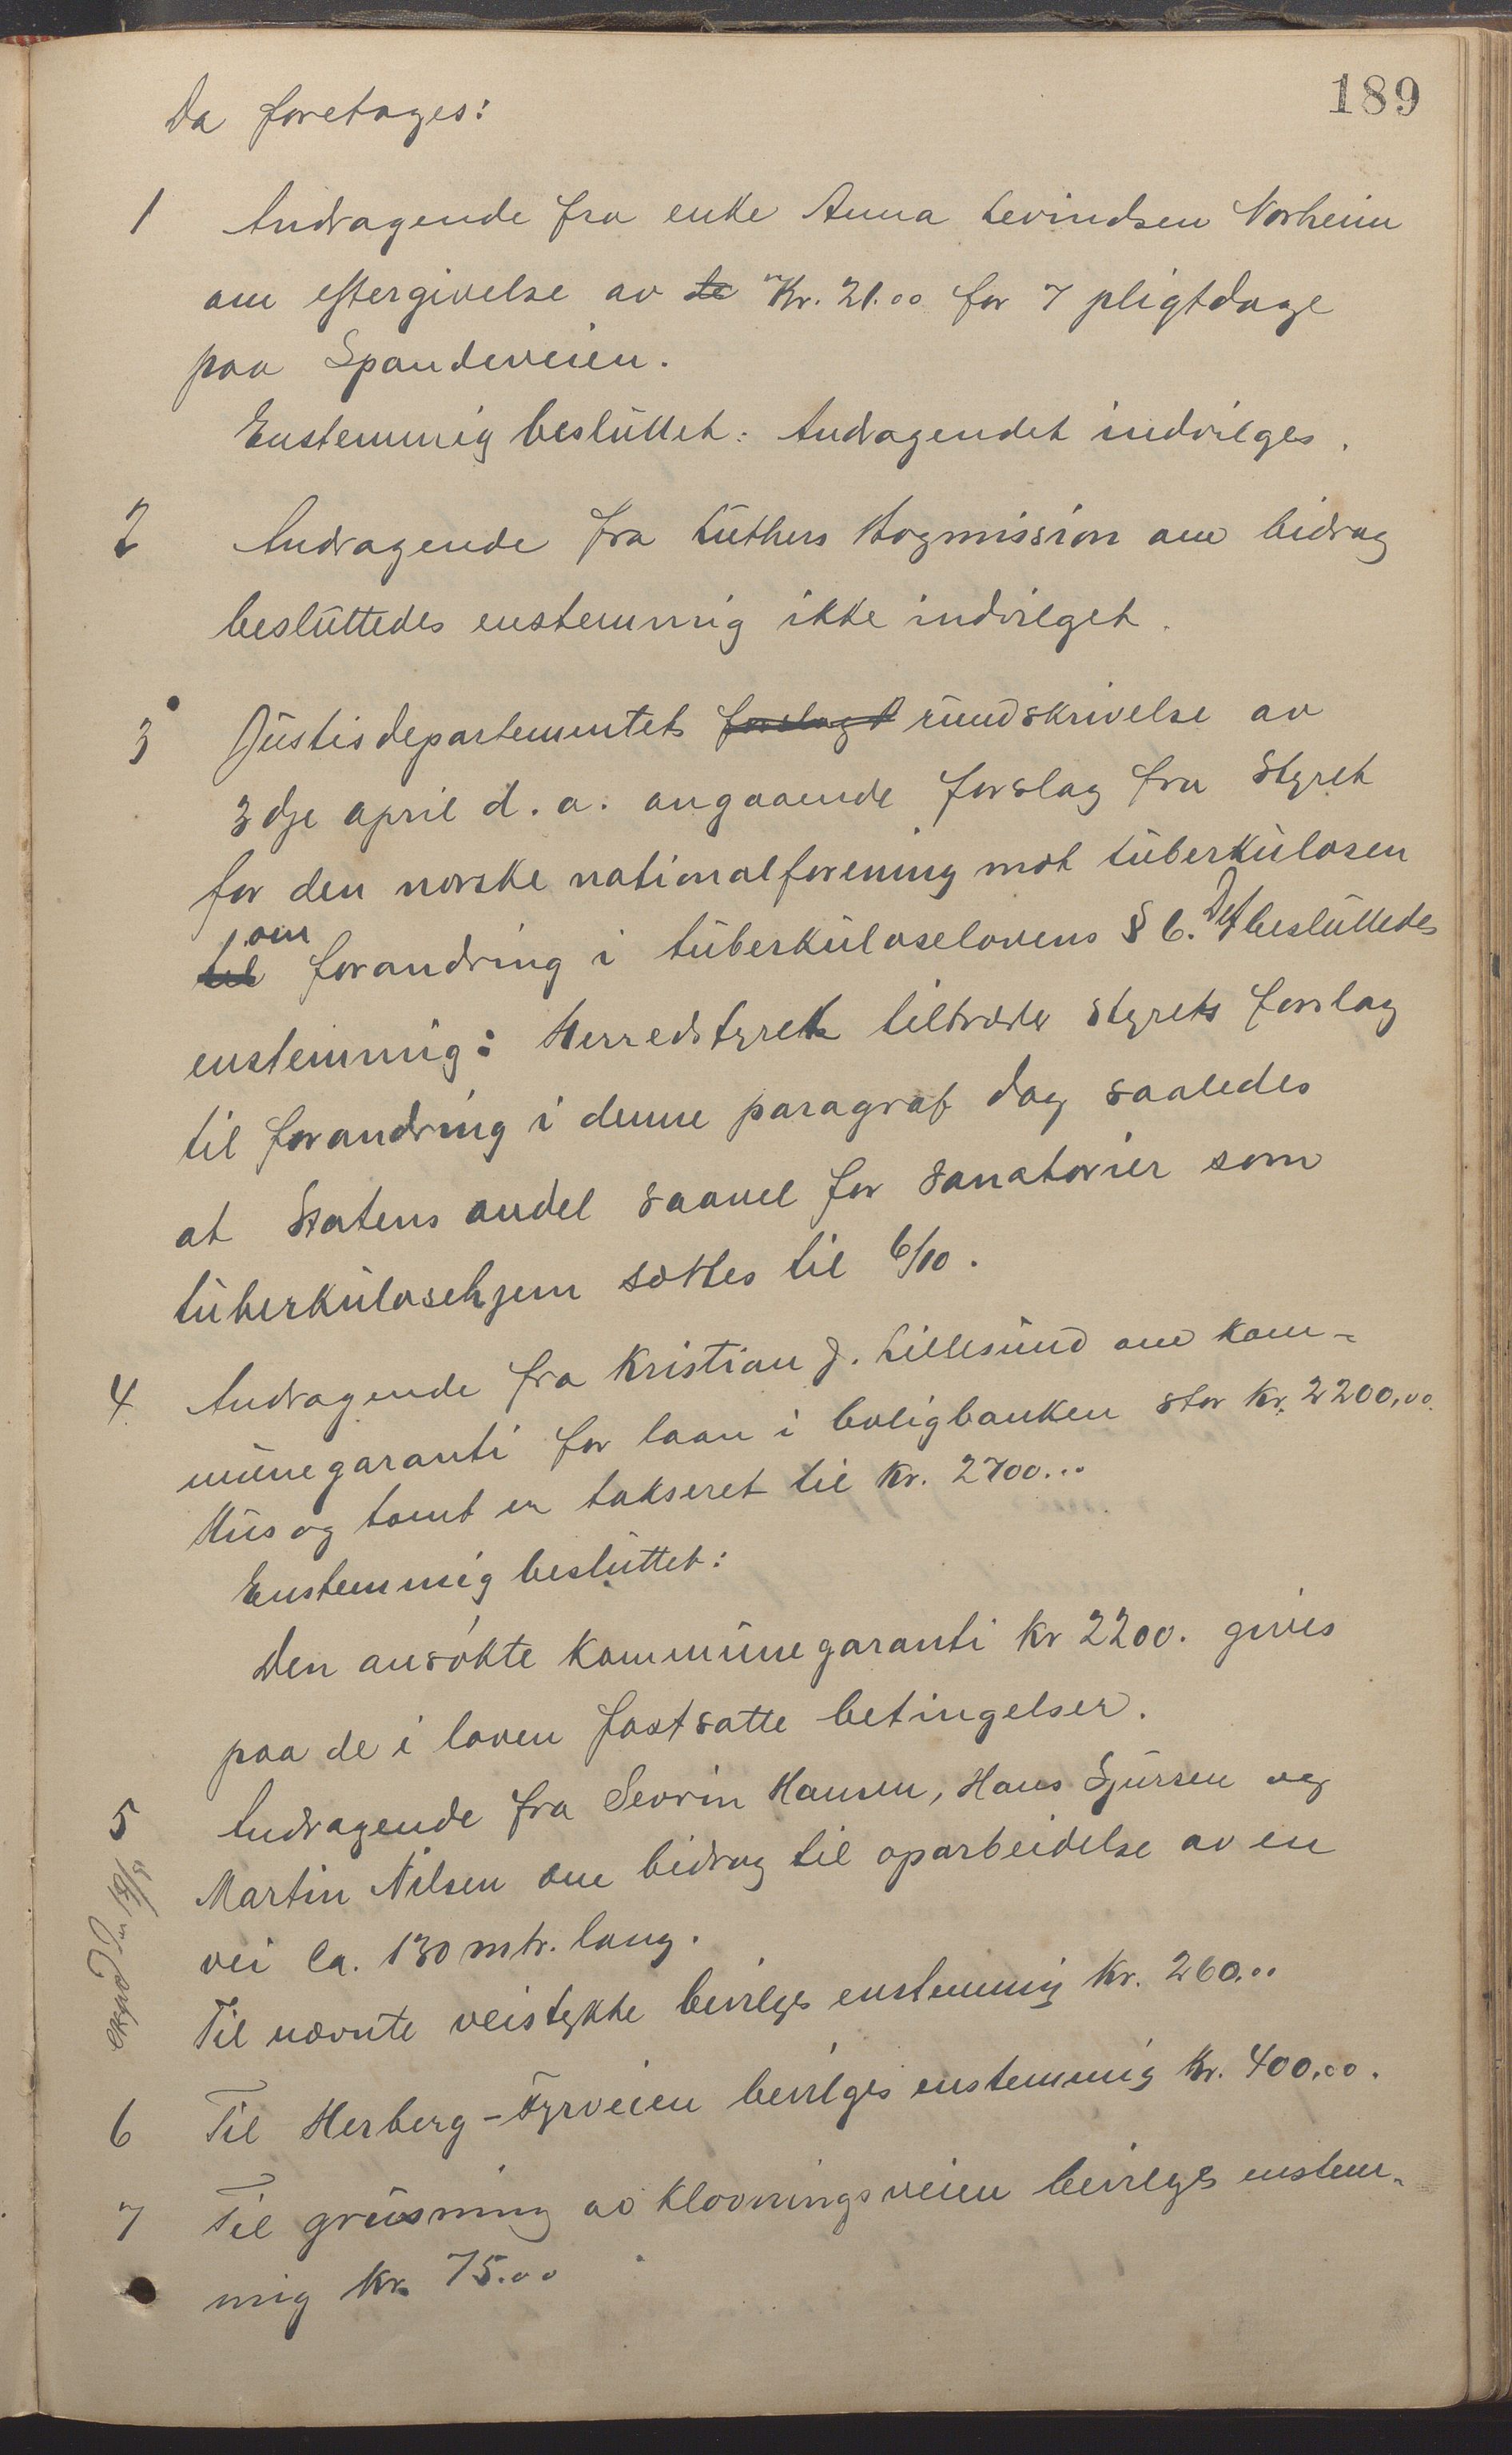 189
Da foretages:
1 Andragende fra enke Anna Levindsen Norheim
om eftergivelse av de Kr. 21.00 for 7 pligtdage
paa Spandeveien.
Enstemmig besluttet: Andragendet indvilges.
2 Andragende fra Luthers Hogmission om bidrag
besluttedes enstemmig ikke indvilget.
3 Justisdepartementets forslag rundskrivelse av
3dje april d.a. angaaende forslag fra styret
for den norske nationalforening mot tuberkulosen
til om forandring i tuberkuloselovens § 6. Det besluttedes
enstemmig: Herredstyret tiltræder styrets forslag
til forandring i denne paragraf dog saaledes
at Statens andel saavel for sanatorier som
tuberkulosehjem sættes til 6/10.
4 Andragende fra Kristian J. Lillesund om kom-
munegaranti for laan i boligbanken stor kr. 2200,00.
Hus og tomt er takseret til kr. 2700...
Enstemmig besluttet:
Den ansøkte kommunegaranti kr 2200. gives
paa de i loven fastsatte betingelser.
5 Andragende fra Sevrin Hansen, Hans Sjursen og
Martin Nilsen om bidrag til oparbeidelse av en
vei ca. 130 mtr. lang.
Til nævnte veistykke bevilges enstemmig kr. 260,00
6 Til Herberg-Fyrveien bevilges enstemmig kr. 400,00.
7 Til grusning av Klovningsveien bevilges enstem-
mig kr. 75.00